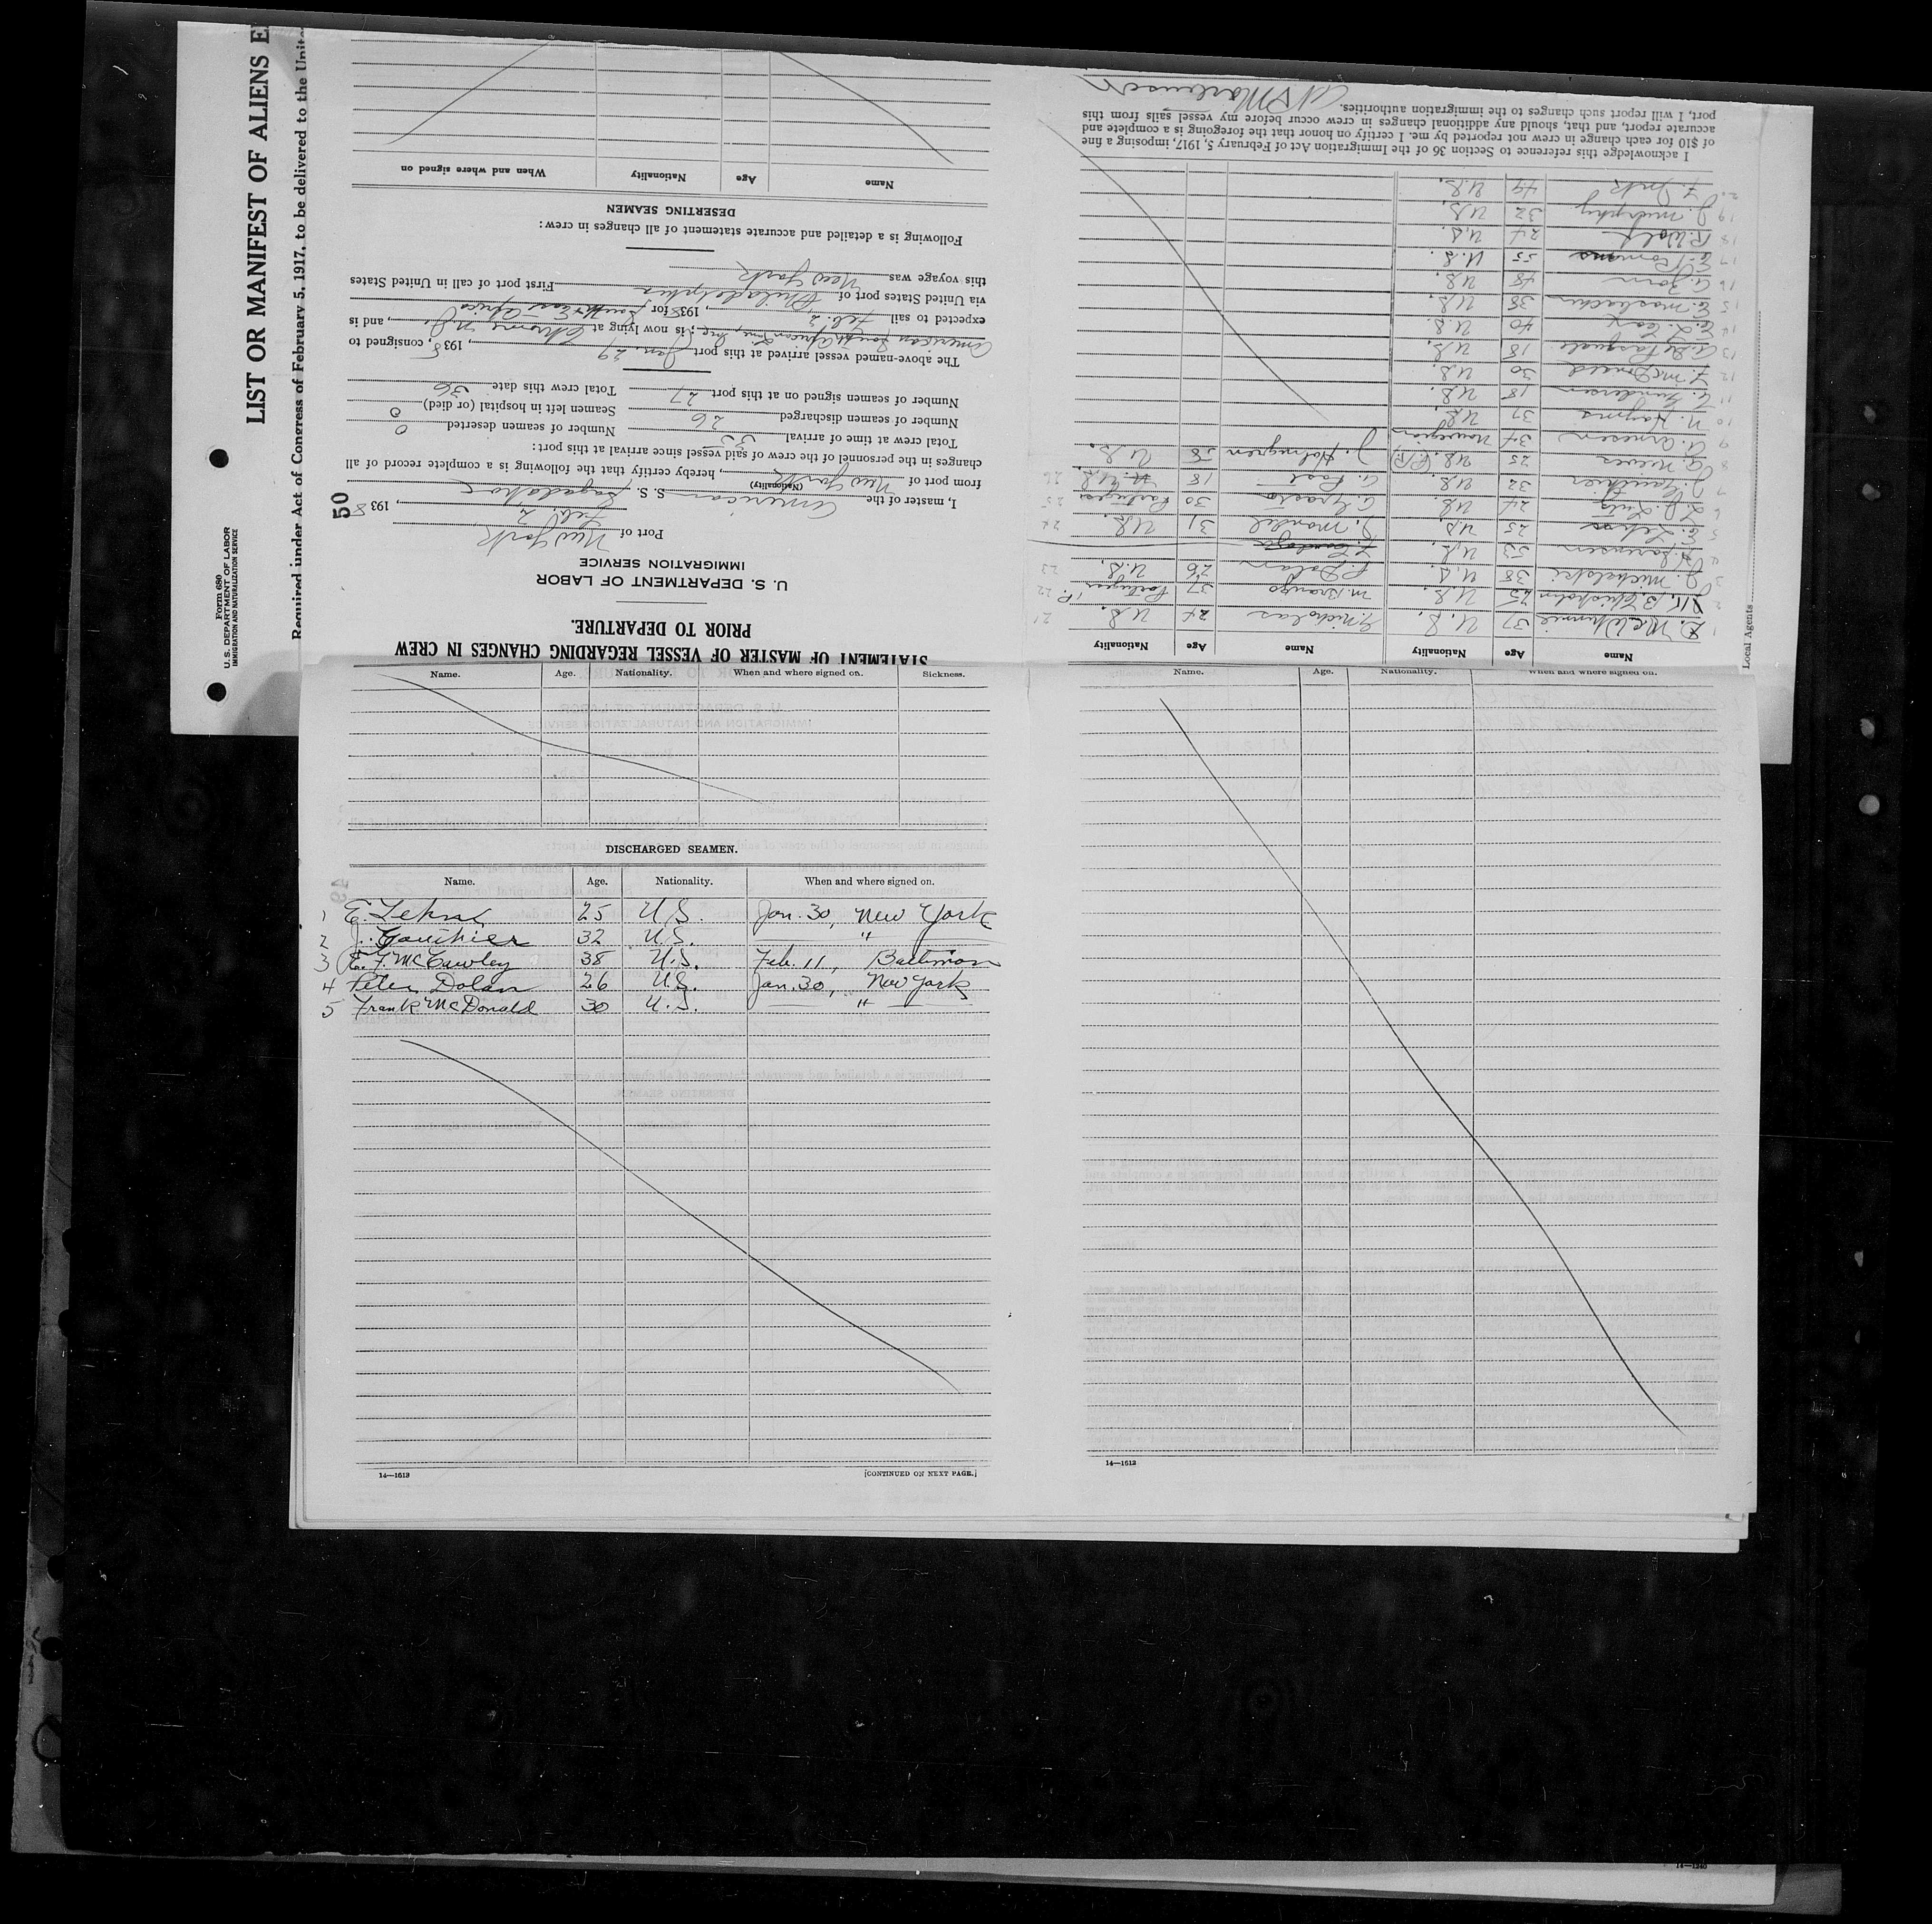 Form 680
U. S. DEPARTMENT OF LABOR
IMMIGRATION AND NATURALIZATION SERVICE
LIST OR MANIFEST OF ALIENS E
Required under Act of Congress of February 5, 1917, to be delivered to the Unite
50
STATEMENT OF MASTER OF VESSEL REGARDING CHANGES IN CREW
PRIOR TO DEPARTURE.
U. S. DEPARTMENT OF LABOR
IMMIGRATION SERVICE
Port of New York
Feb. 2, 1938
I, master of the American S. S. Sagadahoc
(Nationality)
from port of New York, hereby certify that the following is a complete record of all
changes in the personnel of the crew of said vessel since arrival at this port:
Total crew at time of arrival 35 Number of seamen deserted 0
Number of seamen discharged 26 Seamen left in hospital (or died) 0
Number of seamen signed on at this port 27 Total crew this date 36
The above-named vessel arrived at this port Jan. 29, 1938, consigned to
American South African Line, Inc., is now lying at N.J., and is
expected to sail Feb. 2, 1938 for South & East Africa
via United States port of Philadelphia First port of call in United States
this voyage was New York
Following is a detailed and accurate statement of all changes in crew:
DESERTING SEAMEN
Name Age Nationality When and where signed on
Name Age Nationality Name Age Nationality
1 D. McWhinnie 37 U.S. 21 G. Nicholas 24 U.S.
2 B. Chisholm 25 U.S. 22 M. Brango 37
3 J. Michelski 38 U.S. 23 P. Dolan 26 U.S.
4 Sorensen 53 U.S.
5 E. Lekas 25 U.S. 24 J. Mandel 31 U.S.
6 L. J. Lutz 24 U.S. 25 30
7 J. Gauthier 32 U.S. 26 C. Post 18 U.S.
8 G. Nieves 25 U.S. (P.R.) J. Holmgren 58 U.S.
9 A. Arnesen 34 Norwegian
10 N. Hayms 37 U.S.
11 Gundersen 18 U.S.
12 F. McDonald 30 U.S.
13 De Pasquale 18 U.S.
14 E. L. Cox 40 U.S.
15 E. 38 U.S.
16 A. Zorn 48 U.S.
17 E. J. Romans 55 U.S.
18 R. Wolf 24 U.S.
19 J. Murphy 32 U.S.
20 F. 49 U.S.
I acknowledge this reference to Section 36 of the Immigration Act of February 5, 1917, imposing a fine
of $10 for each change in crew not reported by me. I certify on honor that the foregoing is a complete and
accurate report, and that, should any additional changes in crew occur before my vessel sails from this
port, I will report such changes to the immigration authorities.
Local Agents
Name. Age. Nationality. When and where signed on. Sickness.
DISCHARGED SEAMEN.
Name. Age. Nationality. When and where signed on.
1 E. Lekas 25 U.S. Jan. 30, New York
2 J. Gauthier 32 U.S. "
3 E. F. McCawley 38 U.S. Feb. 11, Baltimore
4 Peter Dolan 26 U.S. Jan. 30, New York
5 Frank McDonald 30 U.S. "
14—1613
[CONTINUED ON NEXT PAGE.]
Name. Age. Nationality. When and where signed on.
14—1613
14—1240